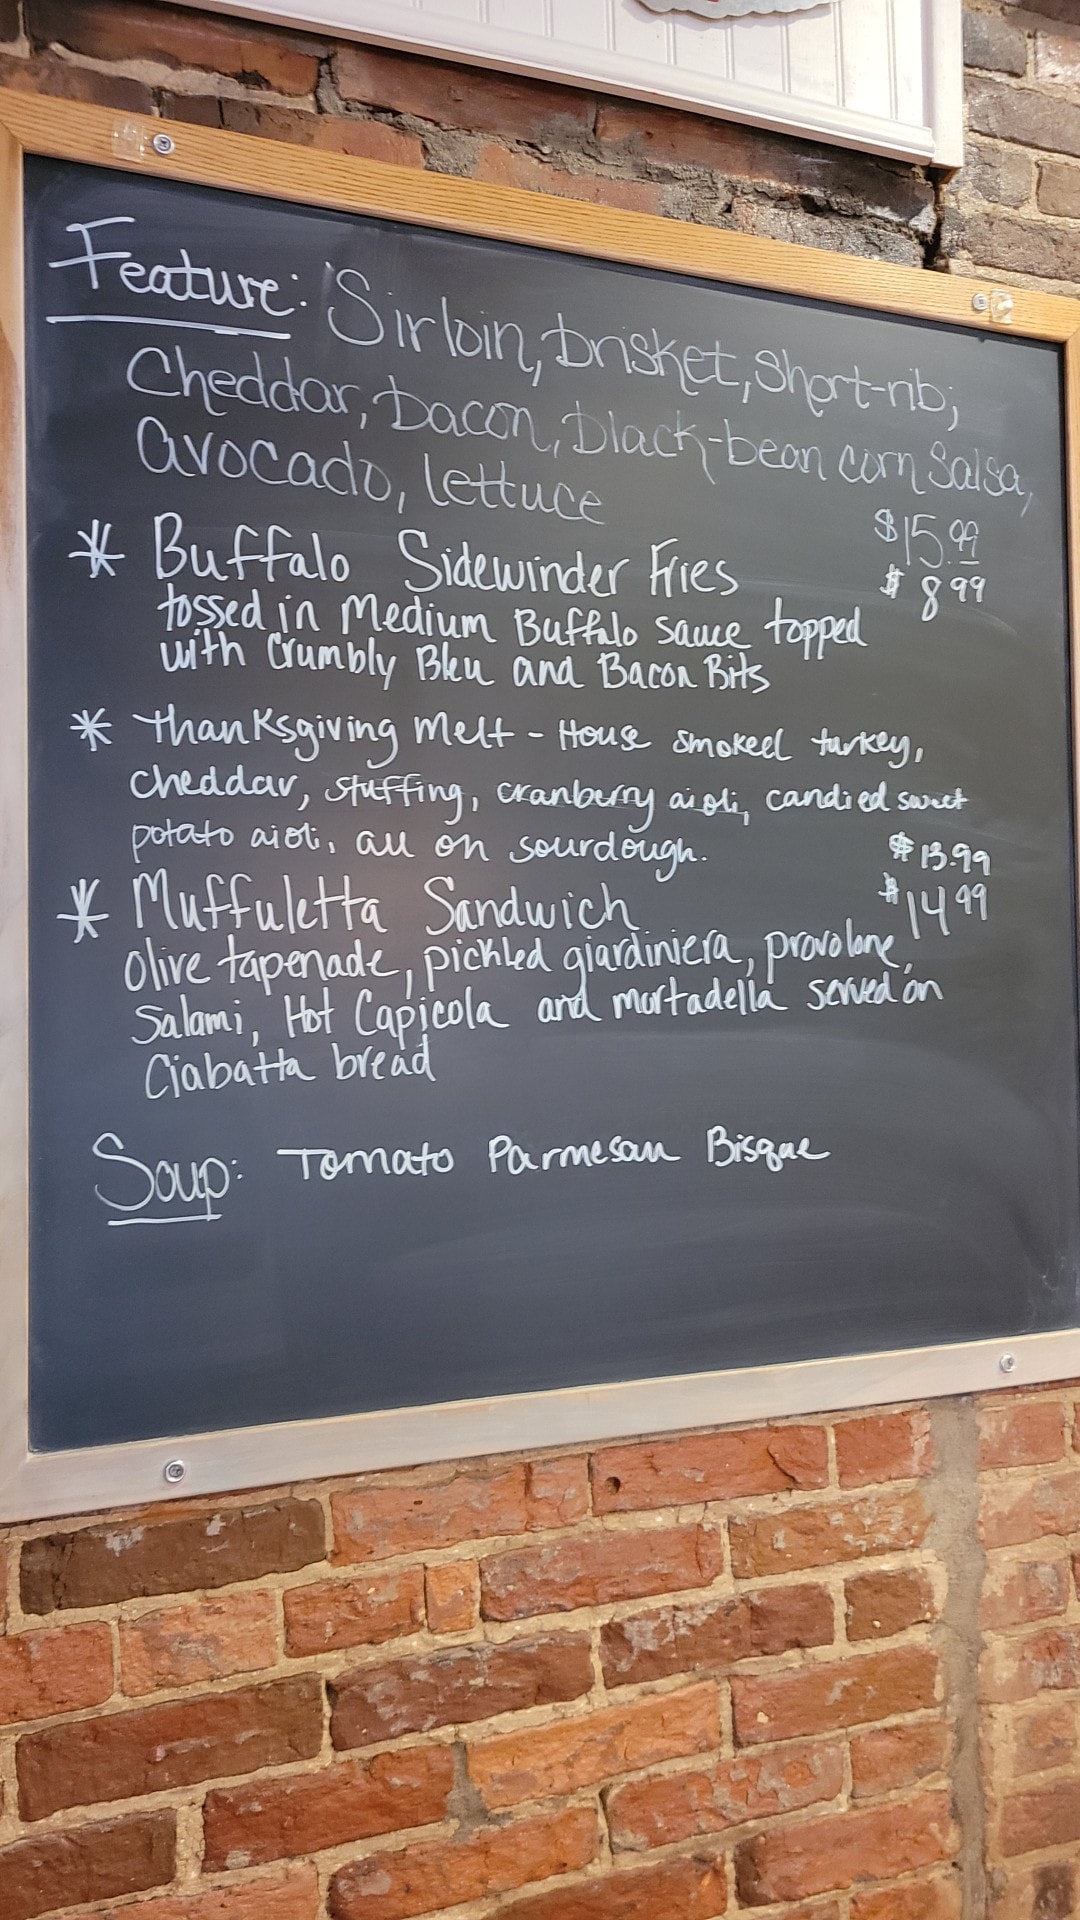 Feature: Sirloin, brisket, short-rib;
Cheddar, bacon, black-bean corn salsa,
avocado, lettuce
$15.99
* Buffalo Sidewinder Fries $8.99
tossed in Medium Buffalo sauce topped
with Crumbly Bleu and Bacon Bits
* Thanksgiving Melt - House smoked turkey,
cheddar, stuffing, cranberry aioli, candied sweet
potato aioli, all on sourdough. $13.99
* Muffuletta Sandwich $14.99
Olive tapenade, pickled giardiniera, provolone,
Salami, Hot Capicola and mortadella served on
Ciabatta bread
Soup: Tomato Parmesan Bisque